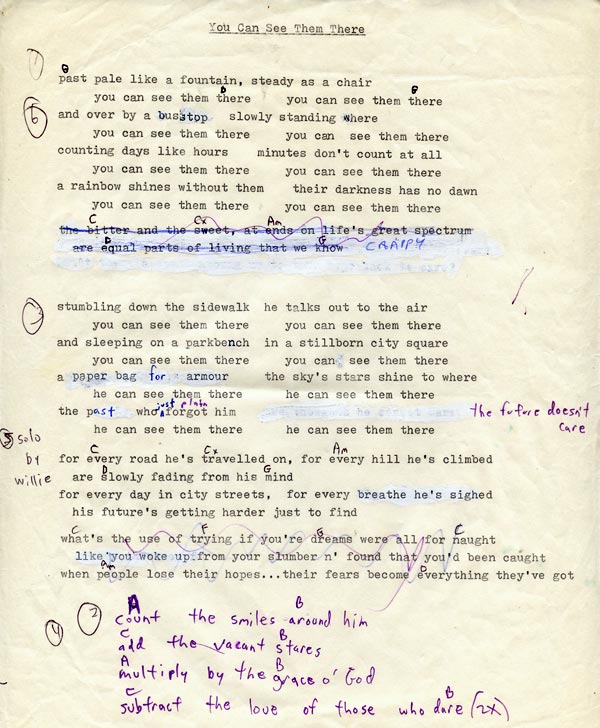 You Can See Them There
1
B
past pale like a fountain, steady as a chair
D B
you can see them there you can see them there
6
and over by a busstop slowly standing where
you can see them there you can see them there
counting days like hours minutes don't count at all
you can see them there you can see them there
a rainbow shines without them their darkness has no dawn
you can see them there you can see them there
C Cx Am
the bitter and the sweet, at ends on life's great spectrum
D G
are equal parts of living that we know CRAIPY
3
stumbling down the sidewalk he talks out to the air
you can see them there you can see them there
and sleeping on a parkbench in a stillborn city square
you can see them there you can see them there
a paper bag for armour the sky's stars shine to where
he can see them there he can see them there
the past who just plain forgot him the future doesn't care
he can see them there he can see them there
5 solo by willie
C Cx Am
for every road he's travelled on, for every hill he's climbed
D G
are slowly fading from his mind
for every day in city streets, for every breathe he's sighed
his future's getting harder just to find
C F G C
what's the use of trying if you're dreams were all for naught
like you woke up from your slumber n' found that you'd been caught
Am D
when people lose their hopes...their fears become everything they've got
4 2
A B
count the smiles around him
C B
add the vacant stares
A B
multiply by the grace o' God
C B
subtract the love of those who dare (2x)